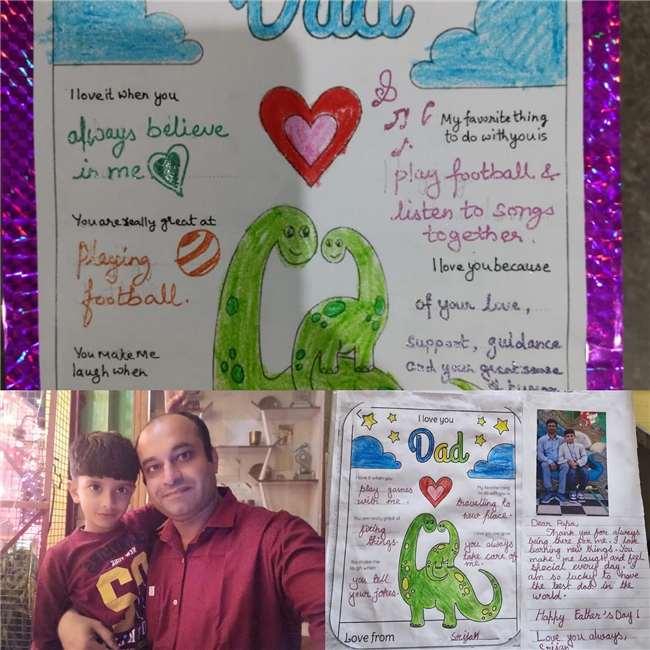 Dad
I love it when you
always believe
in me
My favorite thing
to do with you is
play football &
listen to songs
together.
You are really great at
playing
football.
I love you because
of your love,
support, guidance
and your great sense
of
You make me
laugh when
I love you
Dad
I love it when you
play games
with me.
My favorite thing
to do with you is
travelling to
new place.
You are really great at
fixing
things.
I love you because
you always
take care of
me.
You make me
laugh when
you tell
your jokes.
Love from
Srijan
Dear Papa,
Thank you for always
being there for me. I
new things. You
make me laugh and feel
special every day. I
am so lucky to have
the best dad in the
world.
Happy Father's Day!
Love you always,
Srijan